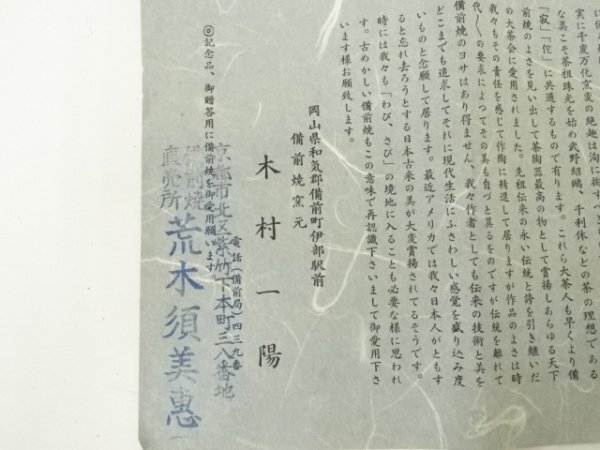 実に千変万化窯変の絶趣は洵に掬すべき
な美こそ茶祖珠光を始め武野紹鷗、千利休などの茶の理想である
「寂」「侘」に共通するもので有ります。これら大茶人も早くより備
前焼のよさを見い出して茶陶器最高の物として賞揚しあらゆる天下
の大茶会に愛用されました。先祖伝来の永い伝統と詩を引き継いだ
我々もその責任を感じて作陶に精進して居りますが作品のよさは時
代〱の要求によってその美も自づと異るものですが伝統を離れて
備前焼のヨサはあり得ません、我々作者としても伝来の技術と美を
どこまでも追求してそれに現代生活にふさわしい感覚を盛り込み度
いものと念願して居ります。最近アメリカでは我々日本人がともす
ると忘れ去ろうとする日本古来の美が大変賞揚されてるそうです。
時には我々も「わび、さび」の境地に入ることも必要な様に思われ
す。古めかしい備前焼もこの意味で再認識下さいまして御愛用下さ
います様お願致します。
岡山県和気郡備前町伊部駅前
備前焼窯元
木村一陽
電話(備前局)四三九番
◎記念品、御贈答用に備前焼を御愛用願います
京都市北区紫竹下本町三八番地
備前焼
直売所 荒木須美惠